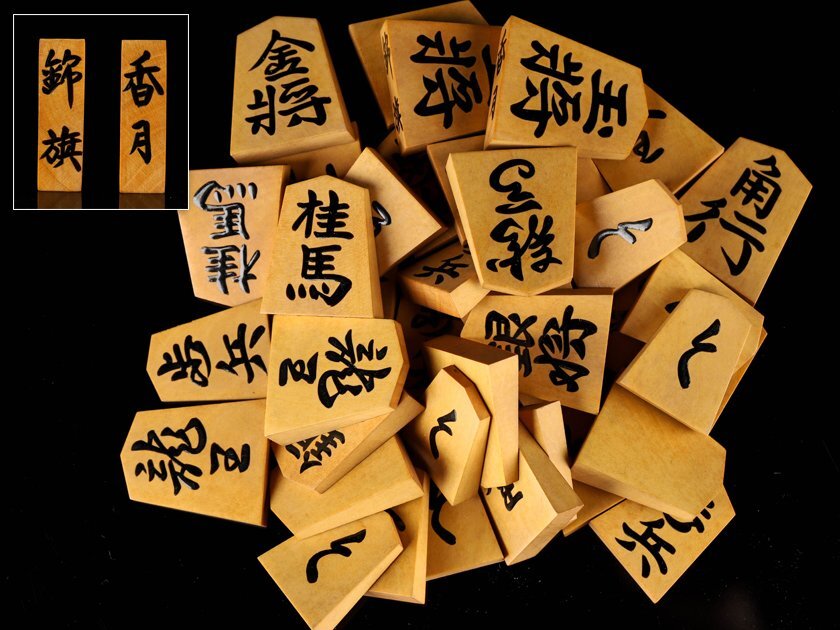 錦旗
香月
金将
玉将
角行
桂馬
桂馬
龍馬
と
と
歩兵
龍王
龍王
と
と
歩兵